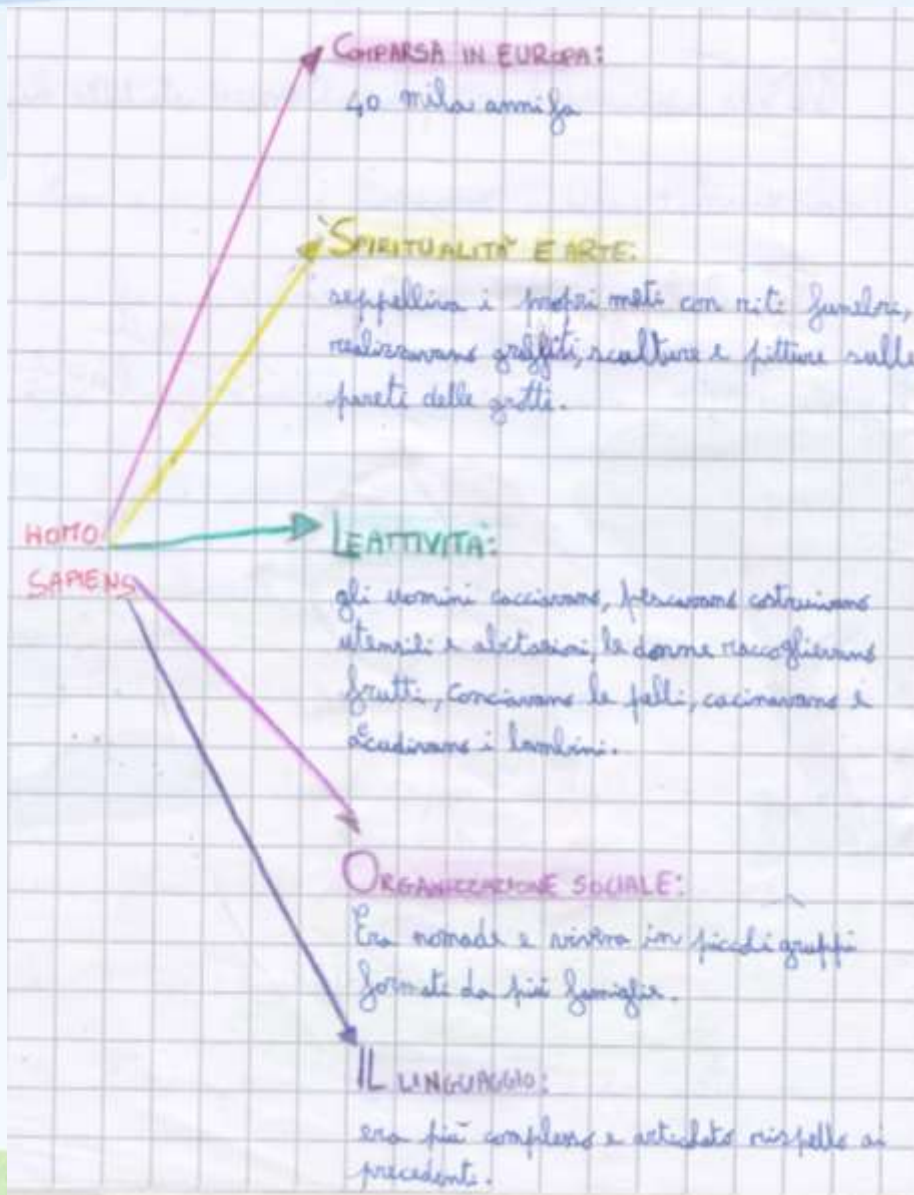 COMPARSA IN EUROPA:
40 mila anni fa
SPIRITUALITÀ E ARTE:
seppelliva i propri morti con riti funebri,
realizzavano graffiti, sculture e pitture sulle
pareti delle grotti.
HOMO
SAPIENS
LE ATTIVITÀ:
gli uomini cacciavano, pescavano costruivano
utensili e abitazioni, le donne raccoglievano
frutti, conciavano le pelli, cucinavano e
acudivano i bambini.
ORGANIZZAZIONE SOCIALE:
Era nomade e viveva in piccoli gruppi
formati da più famiglie.
IL LINGUAGGIO:
era più complesso e articolato rispetto ai
precedenti.